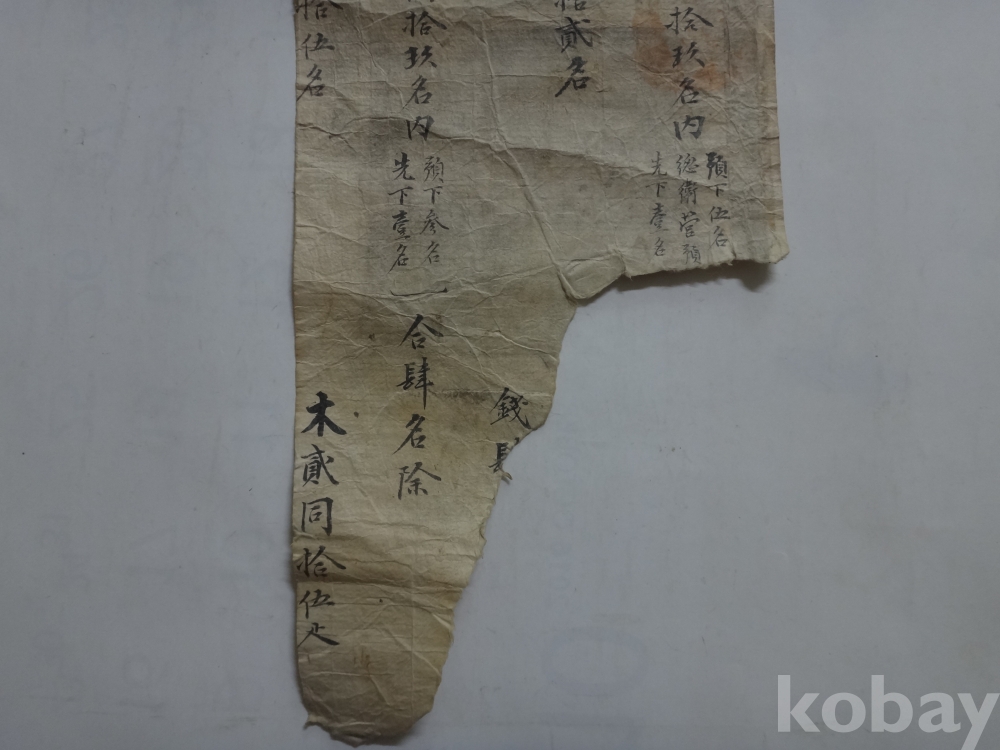 拾玖名内
頉下伍名
総衛営頉
先下壹名
拾貳名
錢
拾玖名内
頉下叅名
先下壹名
合肆名除
拾伍名
木貳同拾伍疋
kobay